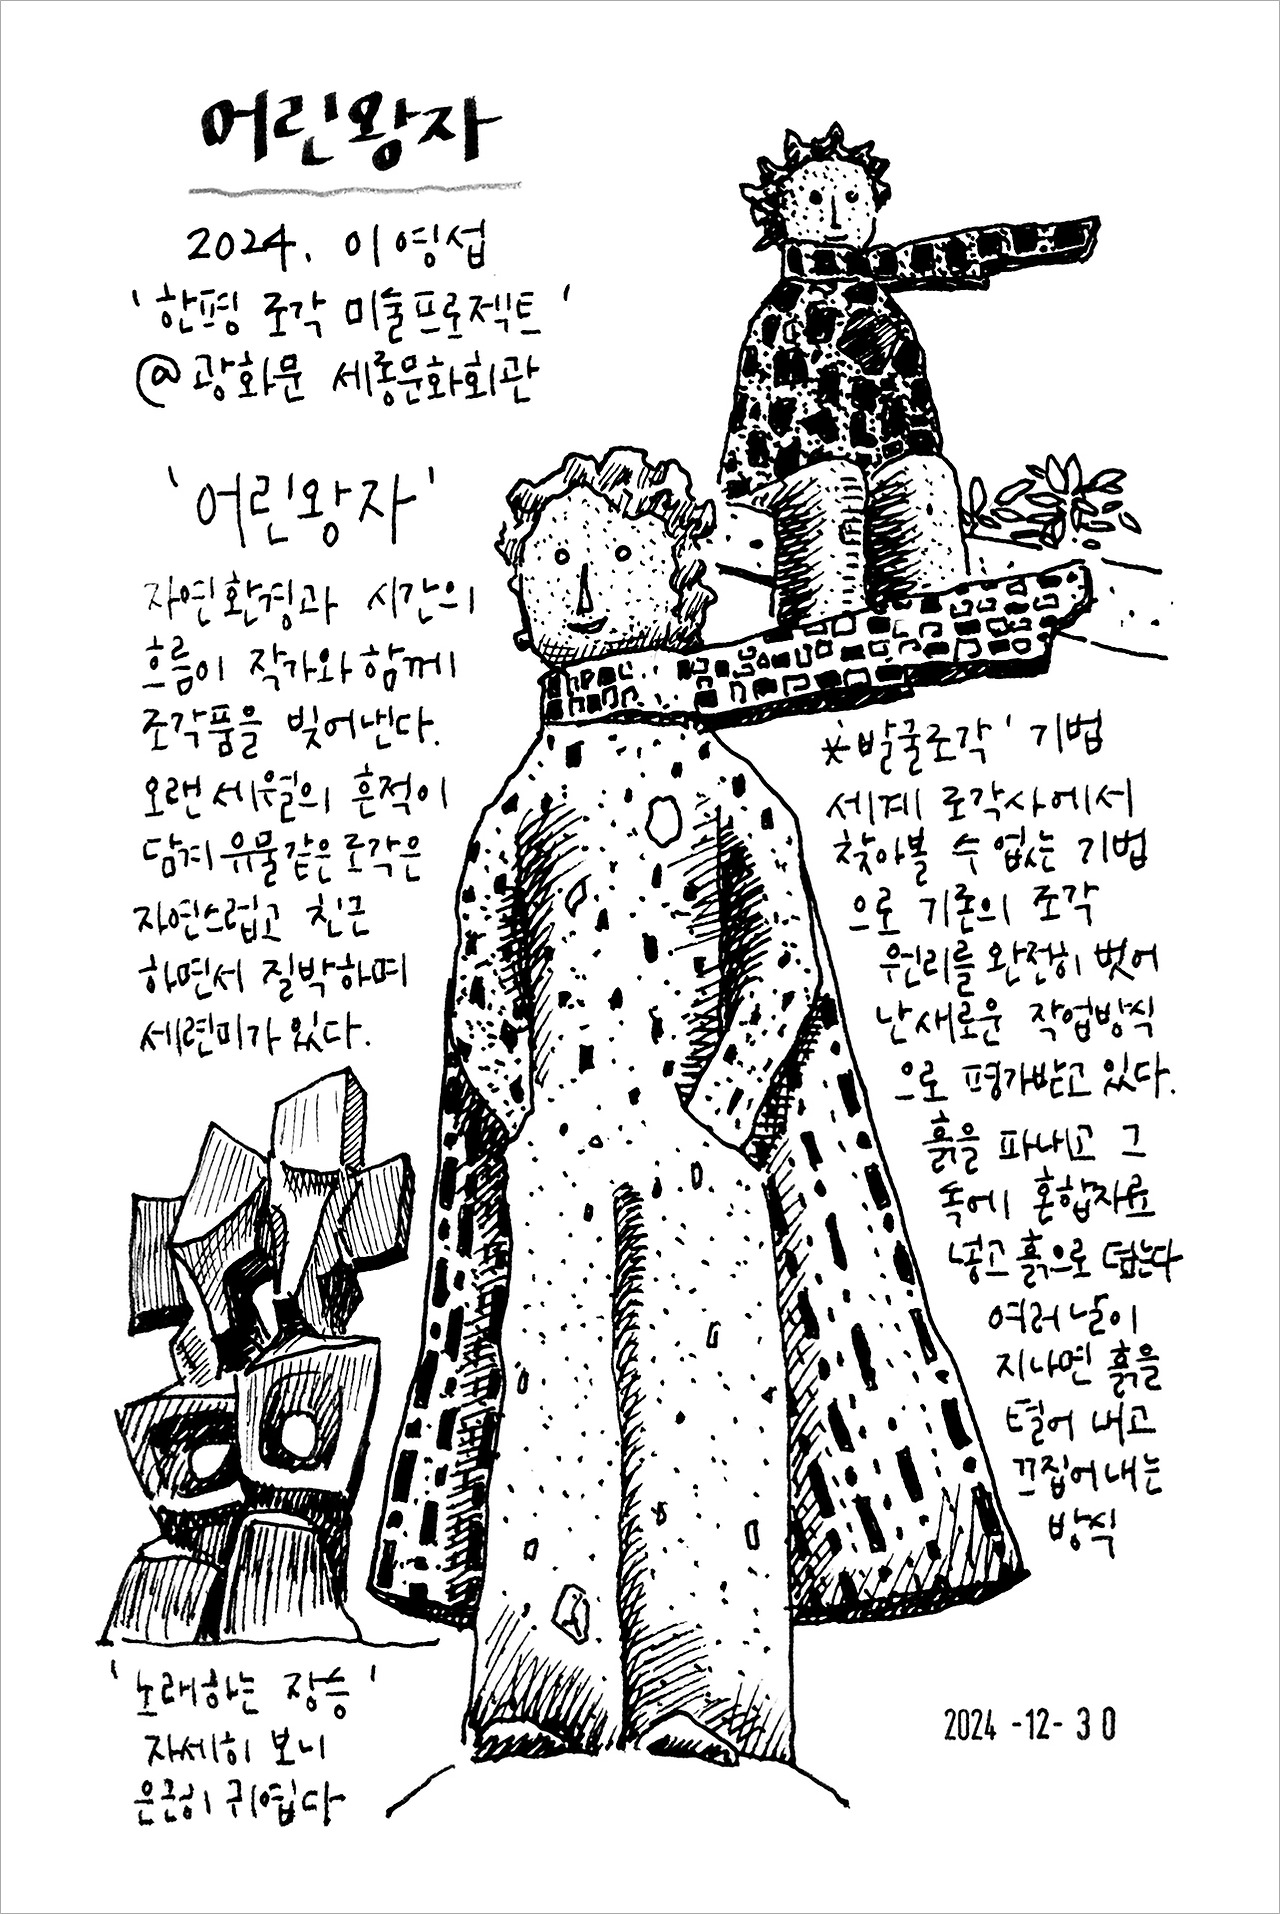 어린왕자
2024. 이영섭
'한평 조각 미술프로젝트'
@광화문 세종문화회관
'어린왕자'
자연환경과 시간의
흐름이 작가와 함께
조각품을 빚어낸다.
오랜세월의 흔적이
담겨 유물같은 조각은
자연스럽고 친근
하면서 질박하며
세련미가 있다.
*발굴조각' 기법
세계 조각사에서
찾아볼 수 없는 기법
으로 기존의 조각
원리를 완전히 벗어
난 새로운 작업방식
으로 평가받고 있다.
흙을 파내고 그
속에 혼합자료
넣고 흙으로 덮는다
여러날이
지나면 흙을
털어 내고
끄집어내는
방식
'노래하는 장승'
자세히 보니
은근히 귀엽다
2024 -12- 30